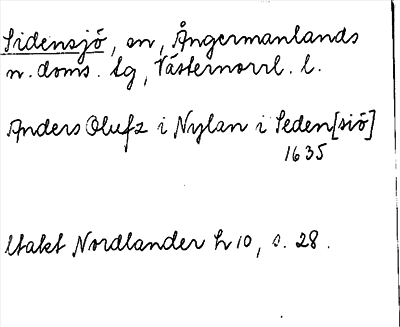 Sidensjö, sn, Ångermanlands
n. doms. lg, Västernorrl. l.
Anders Olufz i Nylan i Seden[siö]
1635
Utakt Nordlander h 10, s. 28.